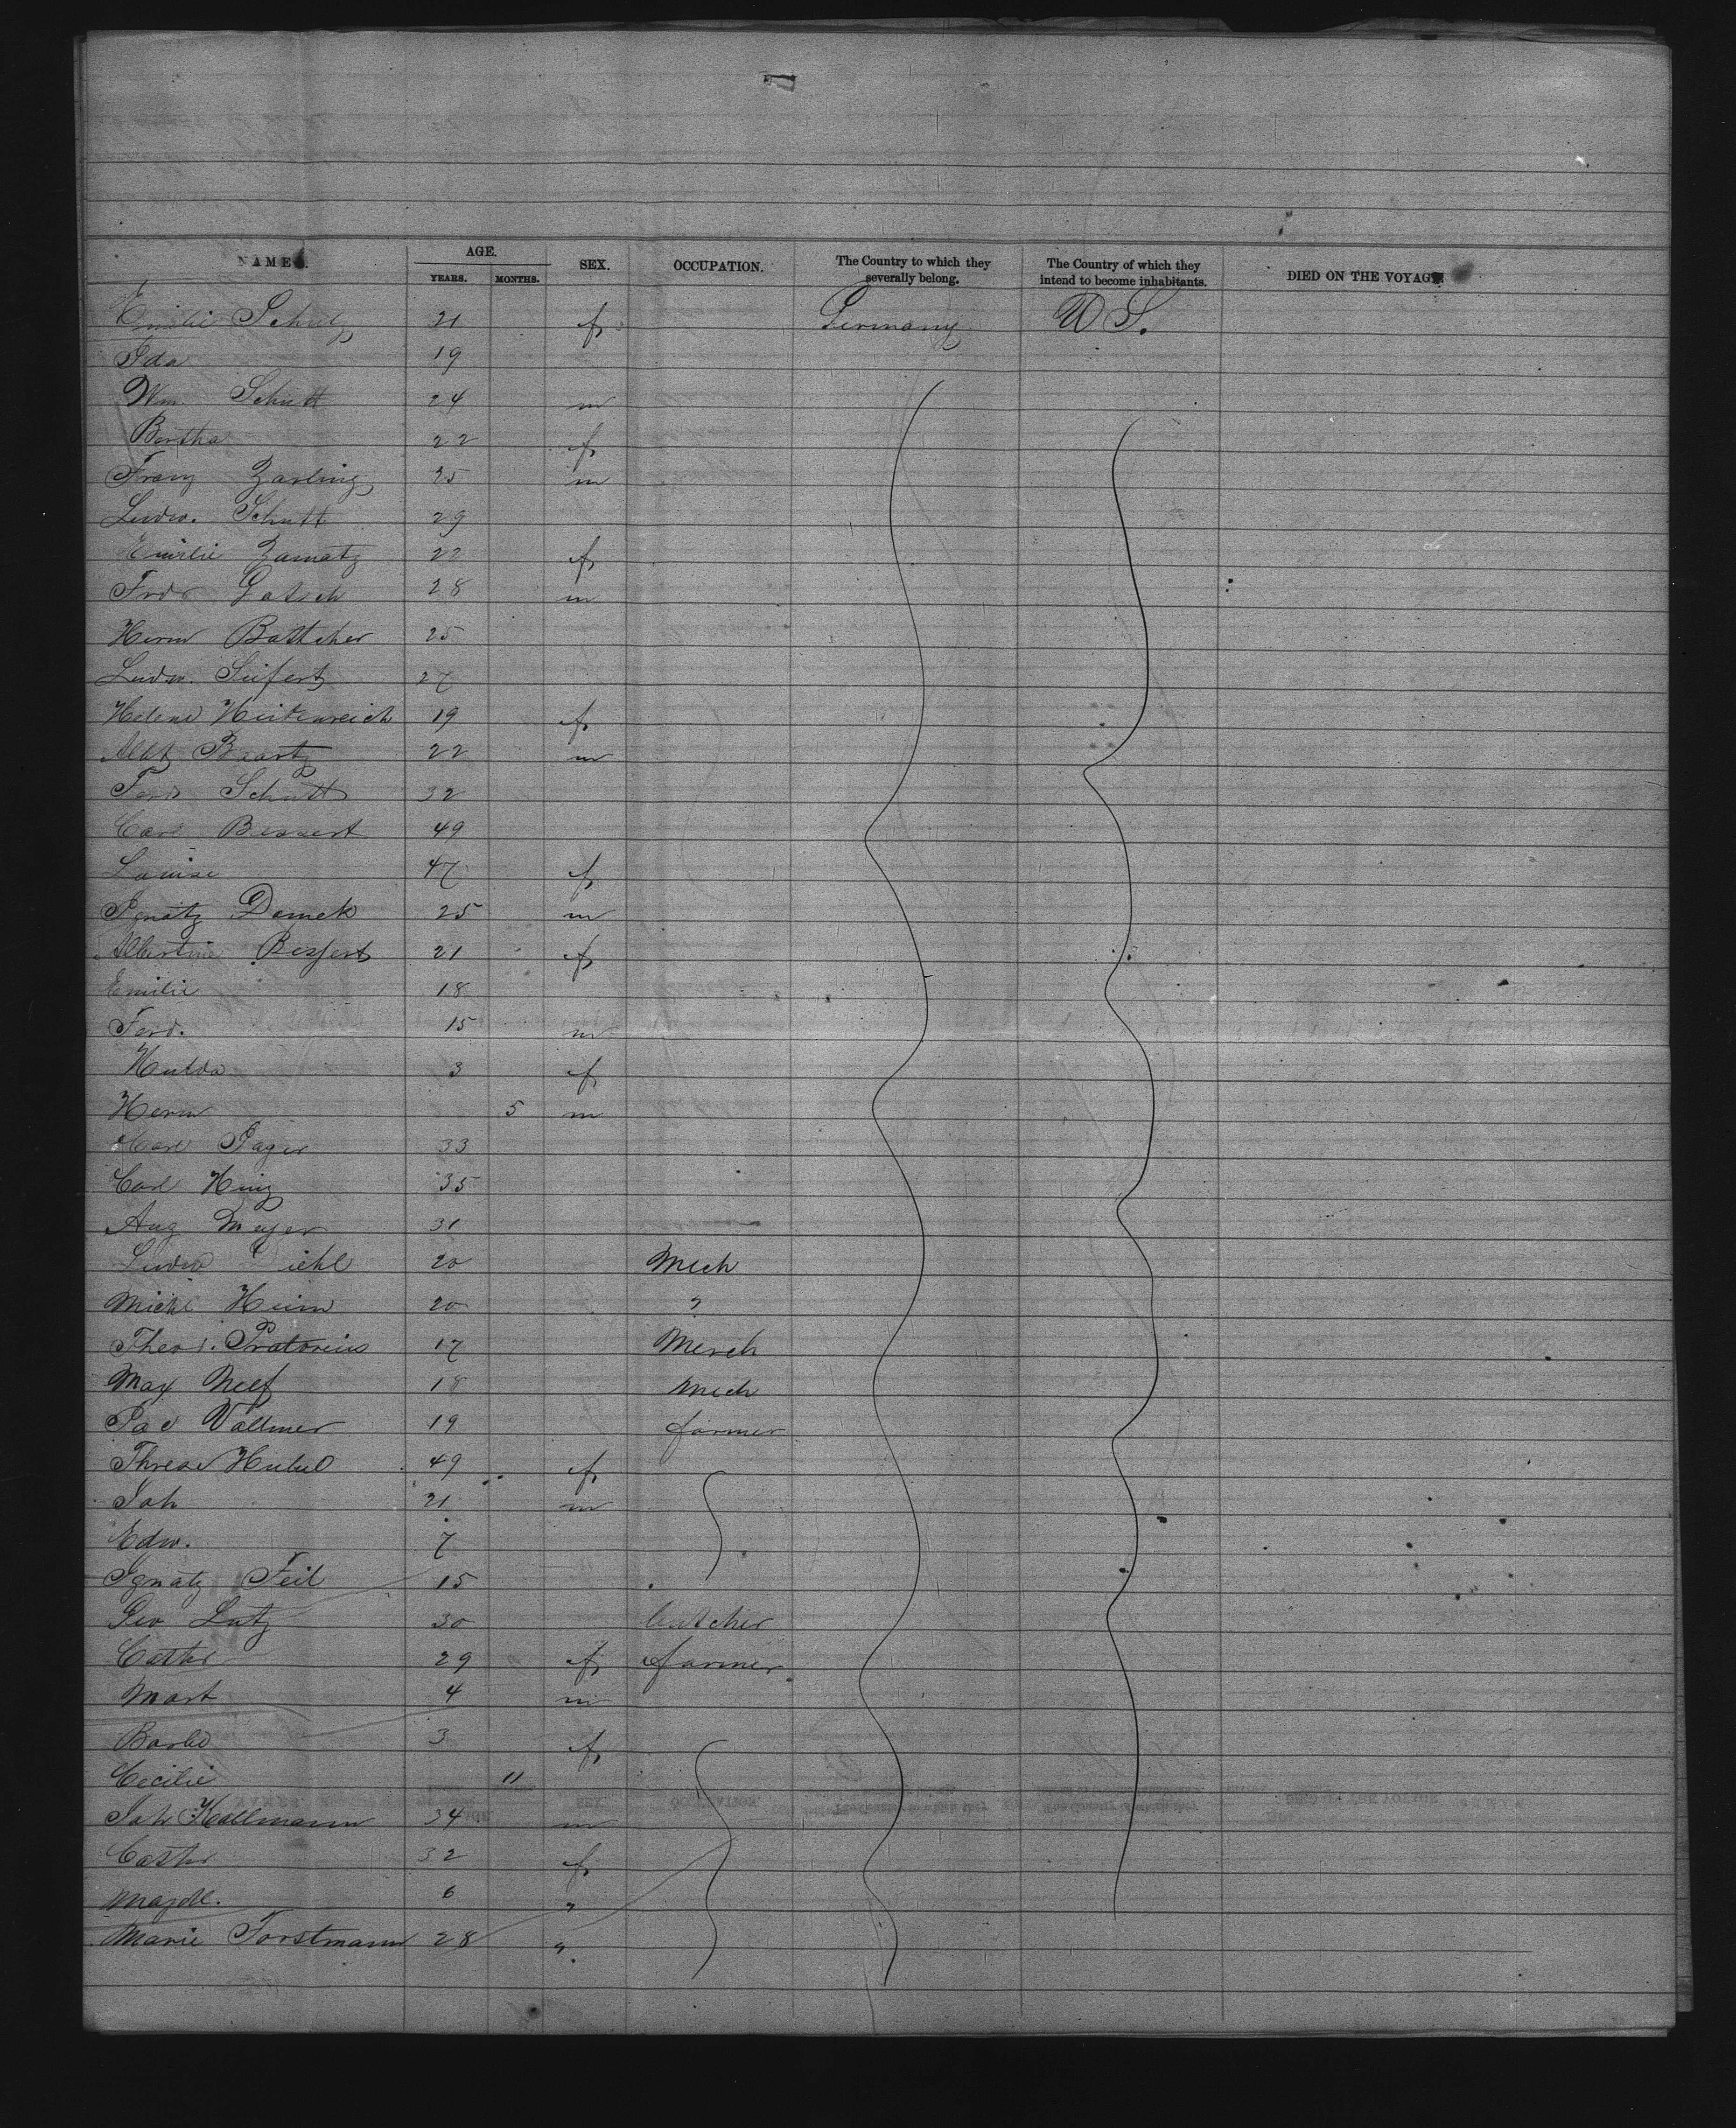 NAMES. AGE. YEARS. MONTHS. SEX. OCCUPATION. The Country to which they severally belong. The Country of which they intend to become inhabitants. DIED ON THE VOYAGE
Emilie Schulz 21 f Germany U S.
Ida 19
Wm Schutt 24 m
Bertha 22 f
Franz Zarling 25 m
Ludw. Schutt 29
Emilie Zamatz 22 f
Frdr Gatsch 28 m
Herm Battcher 25
Ludw. Seifert 27
Helene Heidenreich 19 f
22 m
Ferd Schutt 32
Carl Bessert 49
Louise 47 f
Ignatz Domek 25 m
Albertine Bessert 21 f
Emilie 18
Ferd. 15 m
Hulda 3 f
Herm 5 m
Carl Jager 33
Carl Hinz 35
Aug Meyer 31
Ludw iehl 20 Mech
Michl Heim 20 "
Theod. Pratorius 17 Merch
Max Neef 18 Mech
Jac Vollmer 19 farmer
Threse Hubel 49 f
Joh 21 m
Edw. 7
Ignatz Feil 15
Geo Lutz 30 butcher
Cathr 29 f farmer
Mart 4 m
Barb 3 f
Cecilie 11
Joh Kollmann 34 m
Cathr 32 f
Magdl. 6 "
Marie Forstmann 28 "